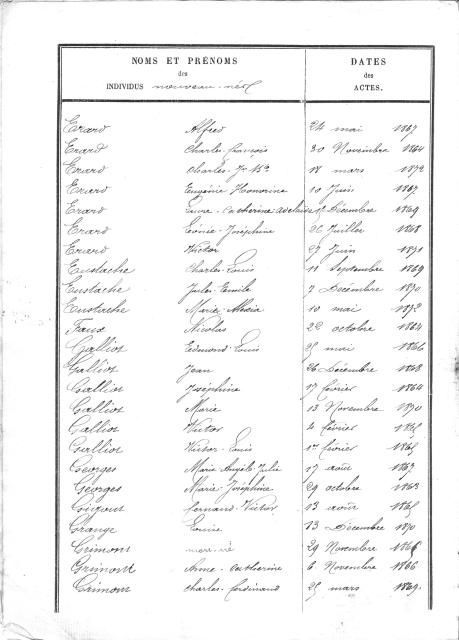 NOMS ET PRÉNOMS
des
INDIVIDUS nouveau-nés
DATES
des
ACTES.
Erard Alfred 24 mai 1867
Erard Charles-françois 30 Novembre 1864
Erard Charles-Jn Bte 18 mars 1872
Erard Eugénie Honorine 10 Juin 1867
Erard Laure-Catherine adelaïde Décembre 1869
Erard Léonie-Joséphine 26 Juillet 1868
Erard Victor 27 Juin 1871
Eustache Charles-Louis 11 Septembre 1869
Eustache Jules-Emile 7 Décembre 1870
Eustache Marie-Alexia 10 mai 1872
Faux Nicolas 22 octobre 1864
Galliot Edmond-Louis 25 mai 1866
Galliot Jean 26 Décembre 1868
Galliot Joséphine 17 février 1864
Galliot Marie 13 Novembre 1870
Galliot Victor 4 février 1865
Galliot Victor-Louis 1er février 1865
Georges Marie Angèle-Julie 17 août 1867
Georges Marie Joséphine 29 octobre 1863
Gigout fernand-Victor 13 août 1865
Grange Louise 13 Décembre 1870
Grimont mort-né 29 Novembre 1865
Grimont Anne-Catherine 6 Novembre 1866
Grimont charles-ferdinand 25 mars 1869